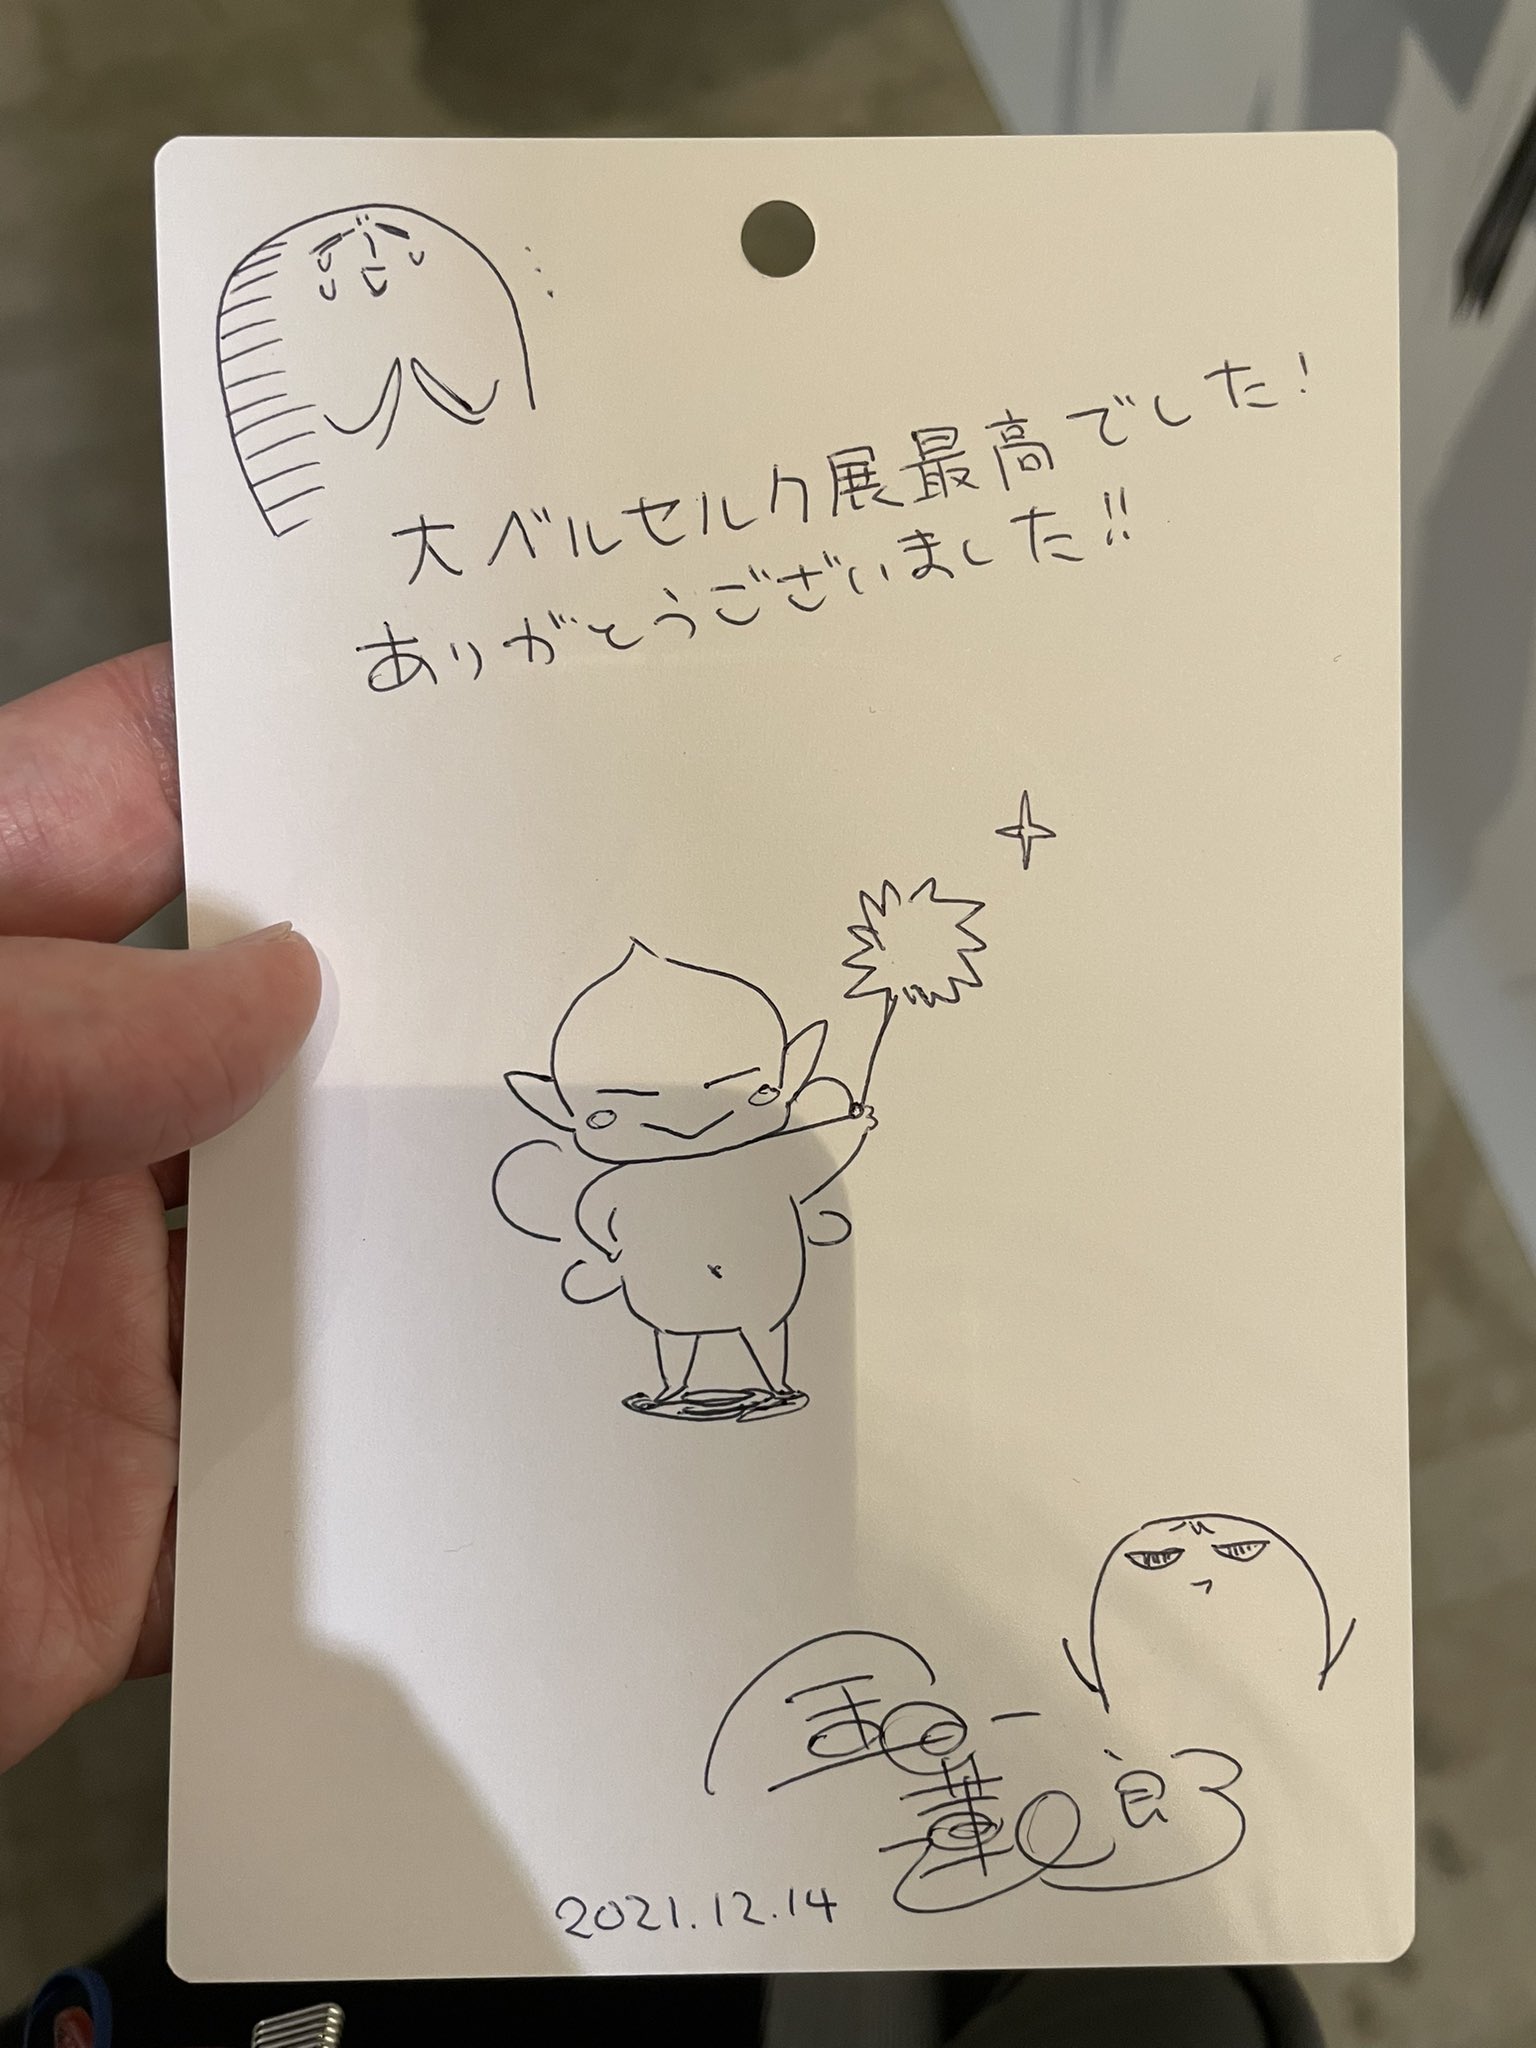 大ベルセルク展最高でした!
ありがとうございました!!
2021.12.14